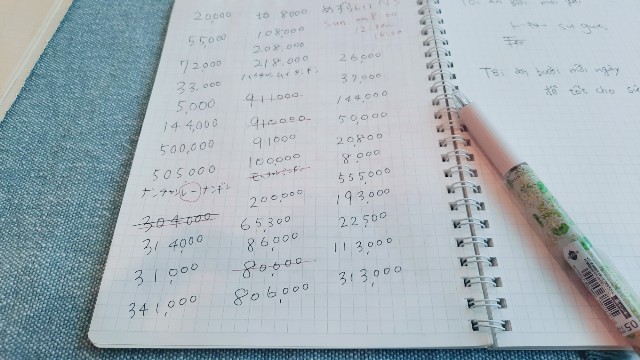 20,000
55,000
72,000
33,000
5,000
144,000
500,000
505,000
304,000
314,000
31,000
341,000
108000
108,000
208,000
218,000
911000
910000
91000
100,000
200,000
65,300
86,000
80,000
806,000
26,000
37,000
144,000
50,000
20,800
8,000
555,000
193,000
22,500
113,000
313,000
Tôi ăn bưởi mỗi ngày
để tốt cho sức